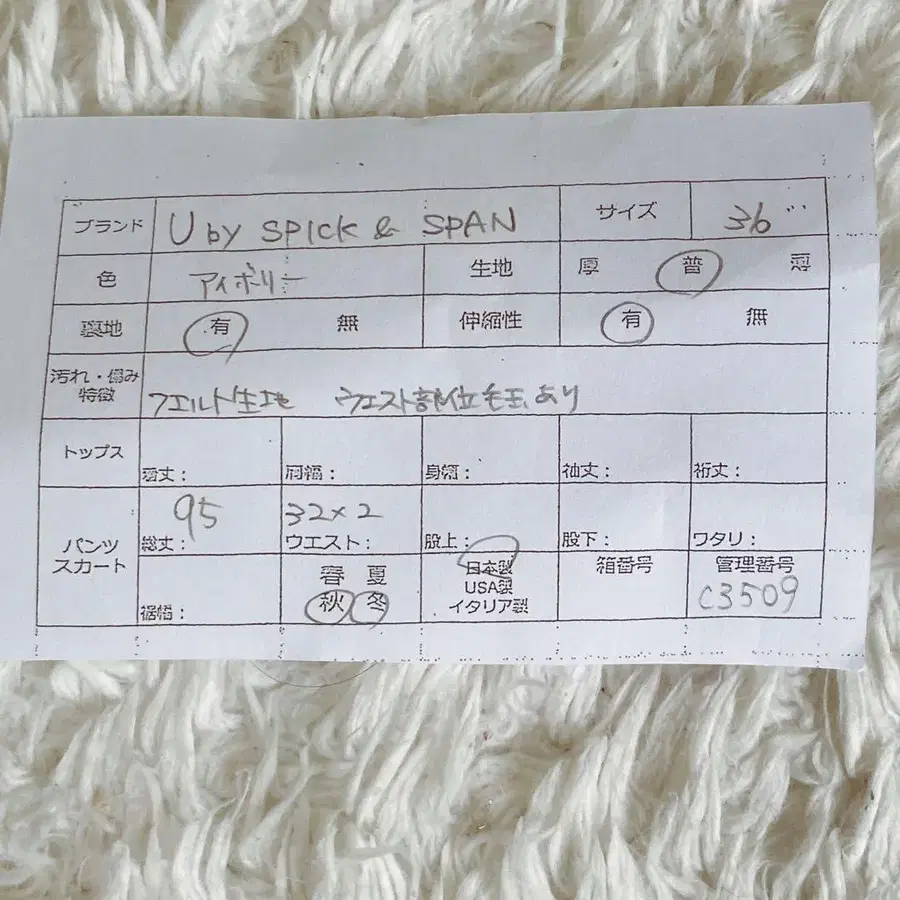 ブランド U by SPICK & SPAN サイズ 36
色 アイボリー 生地 厚 普 薄
裏地 有 無 伸縮性 有 無
汚れ・傷み
特徴 フエルト生地 ウエスト部位毛玉あり
トップス 着丈: 肩幅: 身幅: 袖丈: 裄丈:
95 32×2
パンツ
スカート 総丈: ウエスト: 股上: 股下: ワタリ:
裾幅: 春 夏 秋 冬 日本製 USA製 イタリア製 箱番号 管理番号
C3509